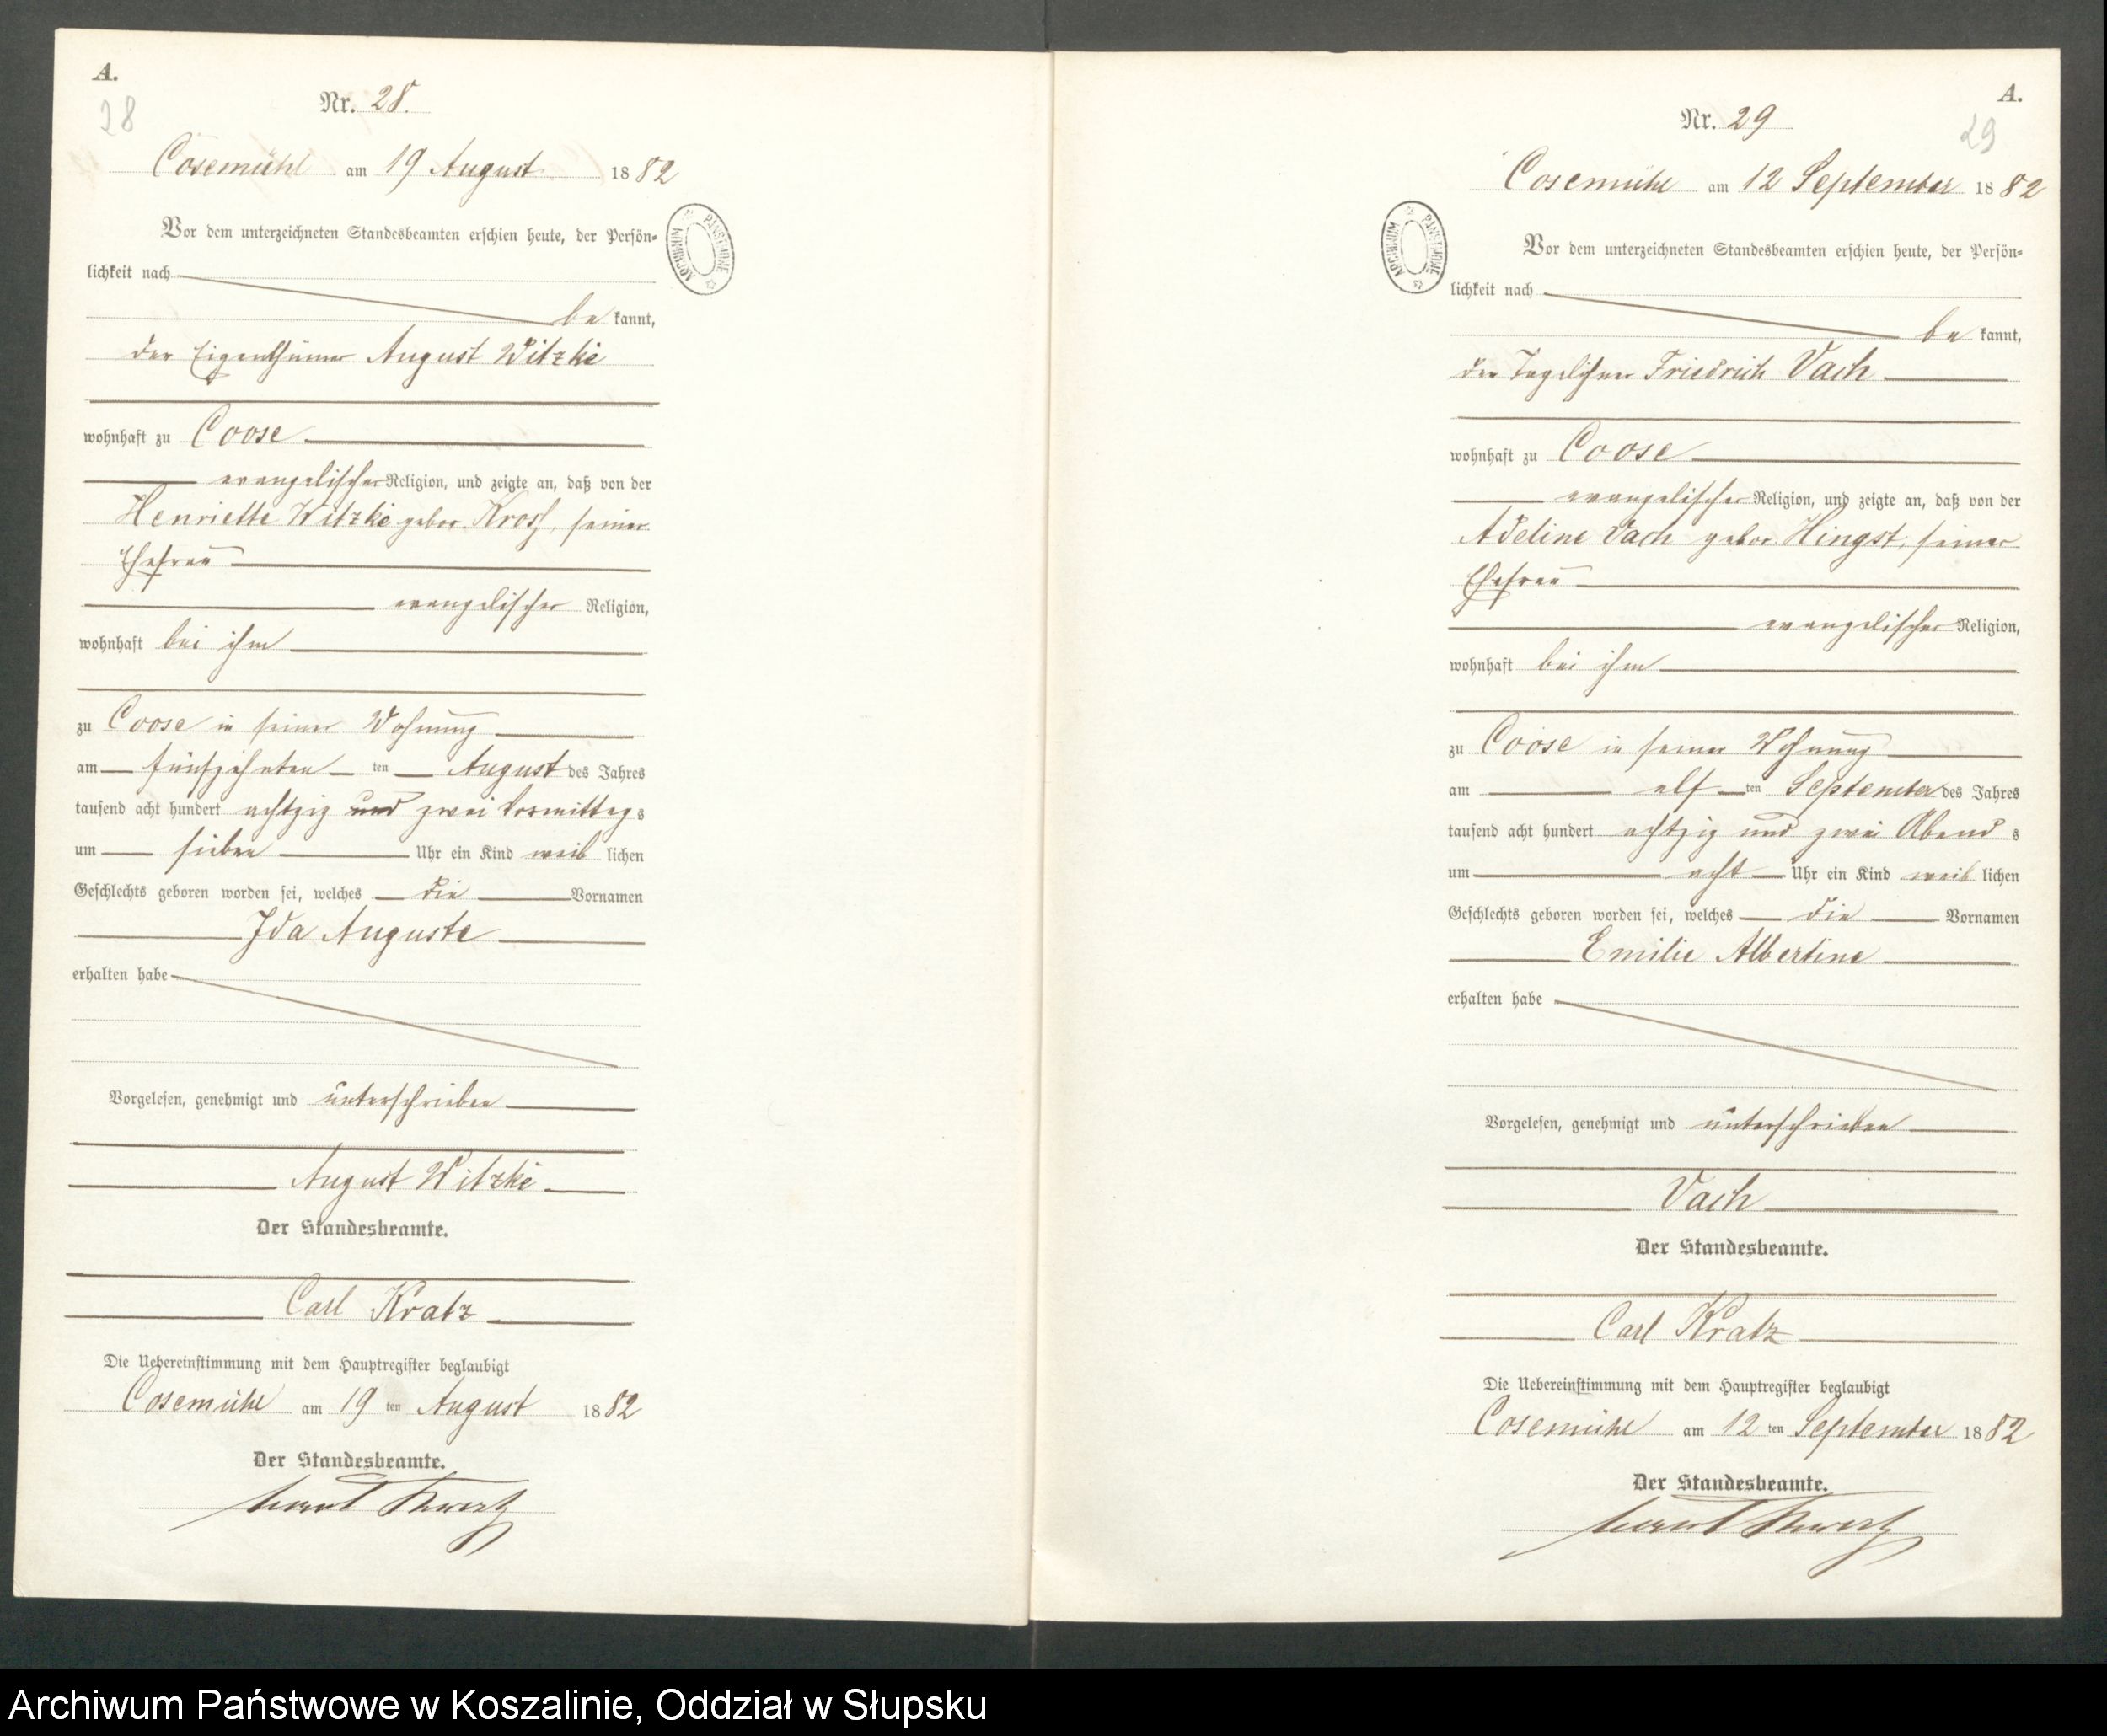 A.
28
Nr. 28.
Cosemühl am 19 August 1882
Vor dem unterzeichneten Standesbeamten erschien heute, der Persön-
lichkeit nach
be kannt,
der Eigenthümer August Witzke
wohnhaft zu Coose
evangelischer Religion, und zeigte an, daß von der
Henriette Witzke gebor. Krosch, seiner
Ehefrau
evangelischer Religion,
wohnhaft bei ihm
zu Coose in seiner Wohnung
am fünfzehnten ten August des Jahres
tausend acht hundert achtzig und zwei Vormittags
um sieben Uhr ein Kind weiblichen
Geschlechts geboren worden sei, welches die Vornamen
Ida Auguste
erhalten habe
Vorgelesen, genehmigt und unterschrieben
August Witzke
Der Standesbeamte.
Carl Kratz
Die Uebereinstimmung mit dem Hauptregister beglaubigt
Cosemühl am 19 ten August 1882
Der Standesbeamte.
ARCHIWUM PAŃSTWOWE
A.
29
Nr. 29
Cosemühl am 12 September 1882
ARCHIWUM PAŃSTWOWE
Vor dem unterzeichneten Standesbeamten erschien heute, der Persön-
lichkeit nach
be kannt,
der Tagelöhner Friedrich Vach
wohnhaft zu Coose
evangelischer Religion, und zeigte an, daß von der
Adeline Vach gebor. Hingst, seiner
Ehefrau
evangelischer Religion,
wohnhaft bei ihm
zu Coose in seiner Wohnung
am elf ten September des Jahres
tausend acht hundert achtzig und zwei Abends
um acht Uhr ein Kind weiblichen
Geschlechts geboren worden sei, welches die Vornamen
Emilie Albertine
erhalten habe
Vorgelesen, genehmigt und unterschrieben
Vach
Der Standesbeamte.
Carl Kratz
Die Uebereinstimmung mit dem Hauptregister beglaubigt
Cosemühl am 12 ten September 1882
Der Standesbeamte.
Archiwum Państwowe w Koszalinie, Oddział w Słupsku